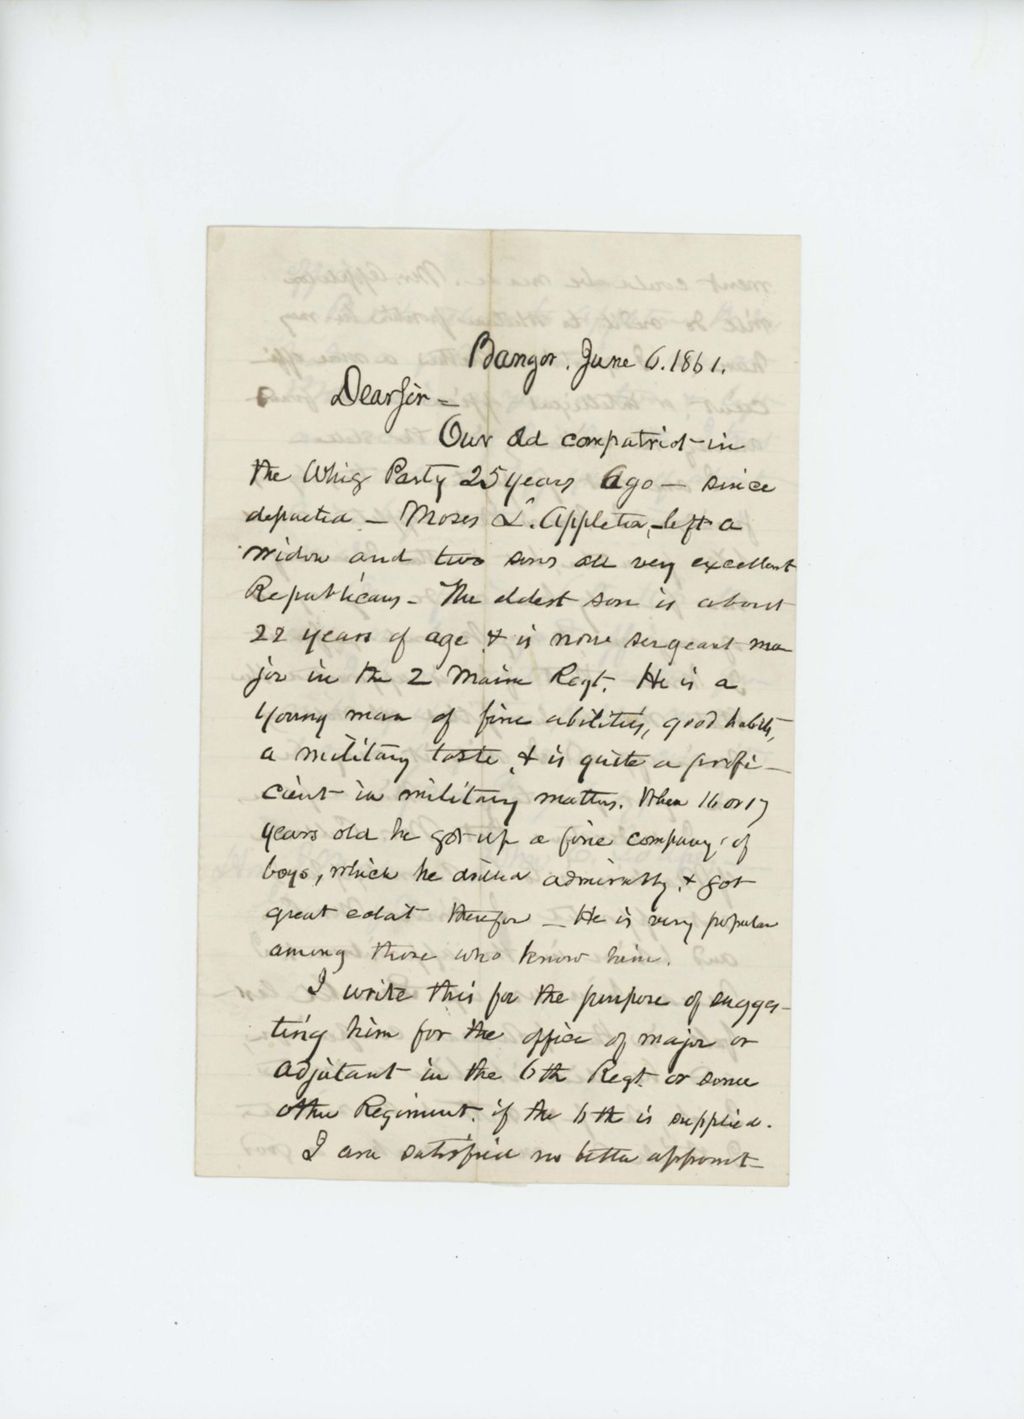 Bangor. June 6. 1861.
Dear Sir -
Our old compatriot in
the Whig Party 25 years ago - since
departed - Moses L. Appleton, - left a
widow and two sons all very excellent
Republicans - The eldest son is about
22 years of age & is now sergeant ma
jor in the 2 Maine Regt. He is a
young man of fine abilities, good habits,
a military taste, & is quite a profi-
cient in military matters. When 16 or 17
years old he got up a fine company of
boys, which he drilled admirably, & got
great eclat therefor - He is very popular
among those who know him.
I write this for the purpose of sugges-
ting him for the office of major or
adjutant in the 6th Regt. or some
other Regiment. if the 6th is supplied.
I am satisfied no better appoint-